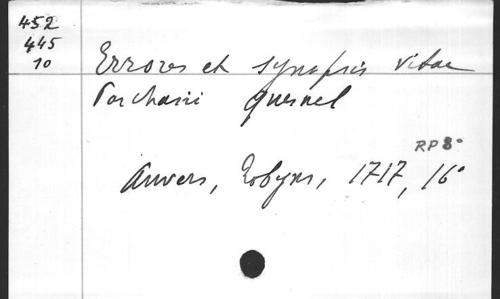 452
445
10
Errores et synopsis vitae
Paschasii Quesnel
Anvers, Robyns, 1717, 16°
RP 8°